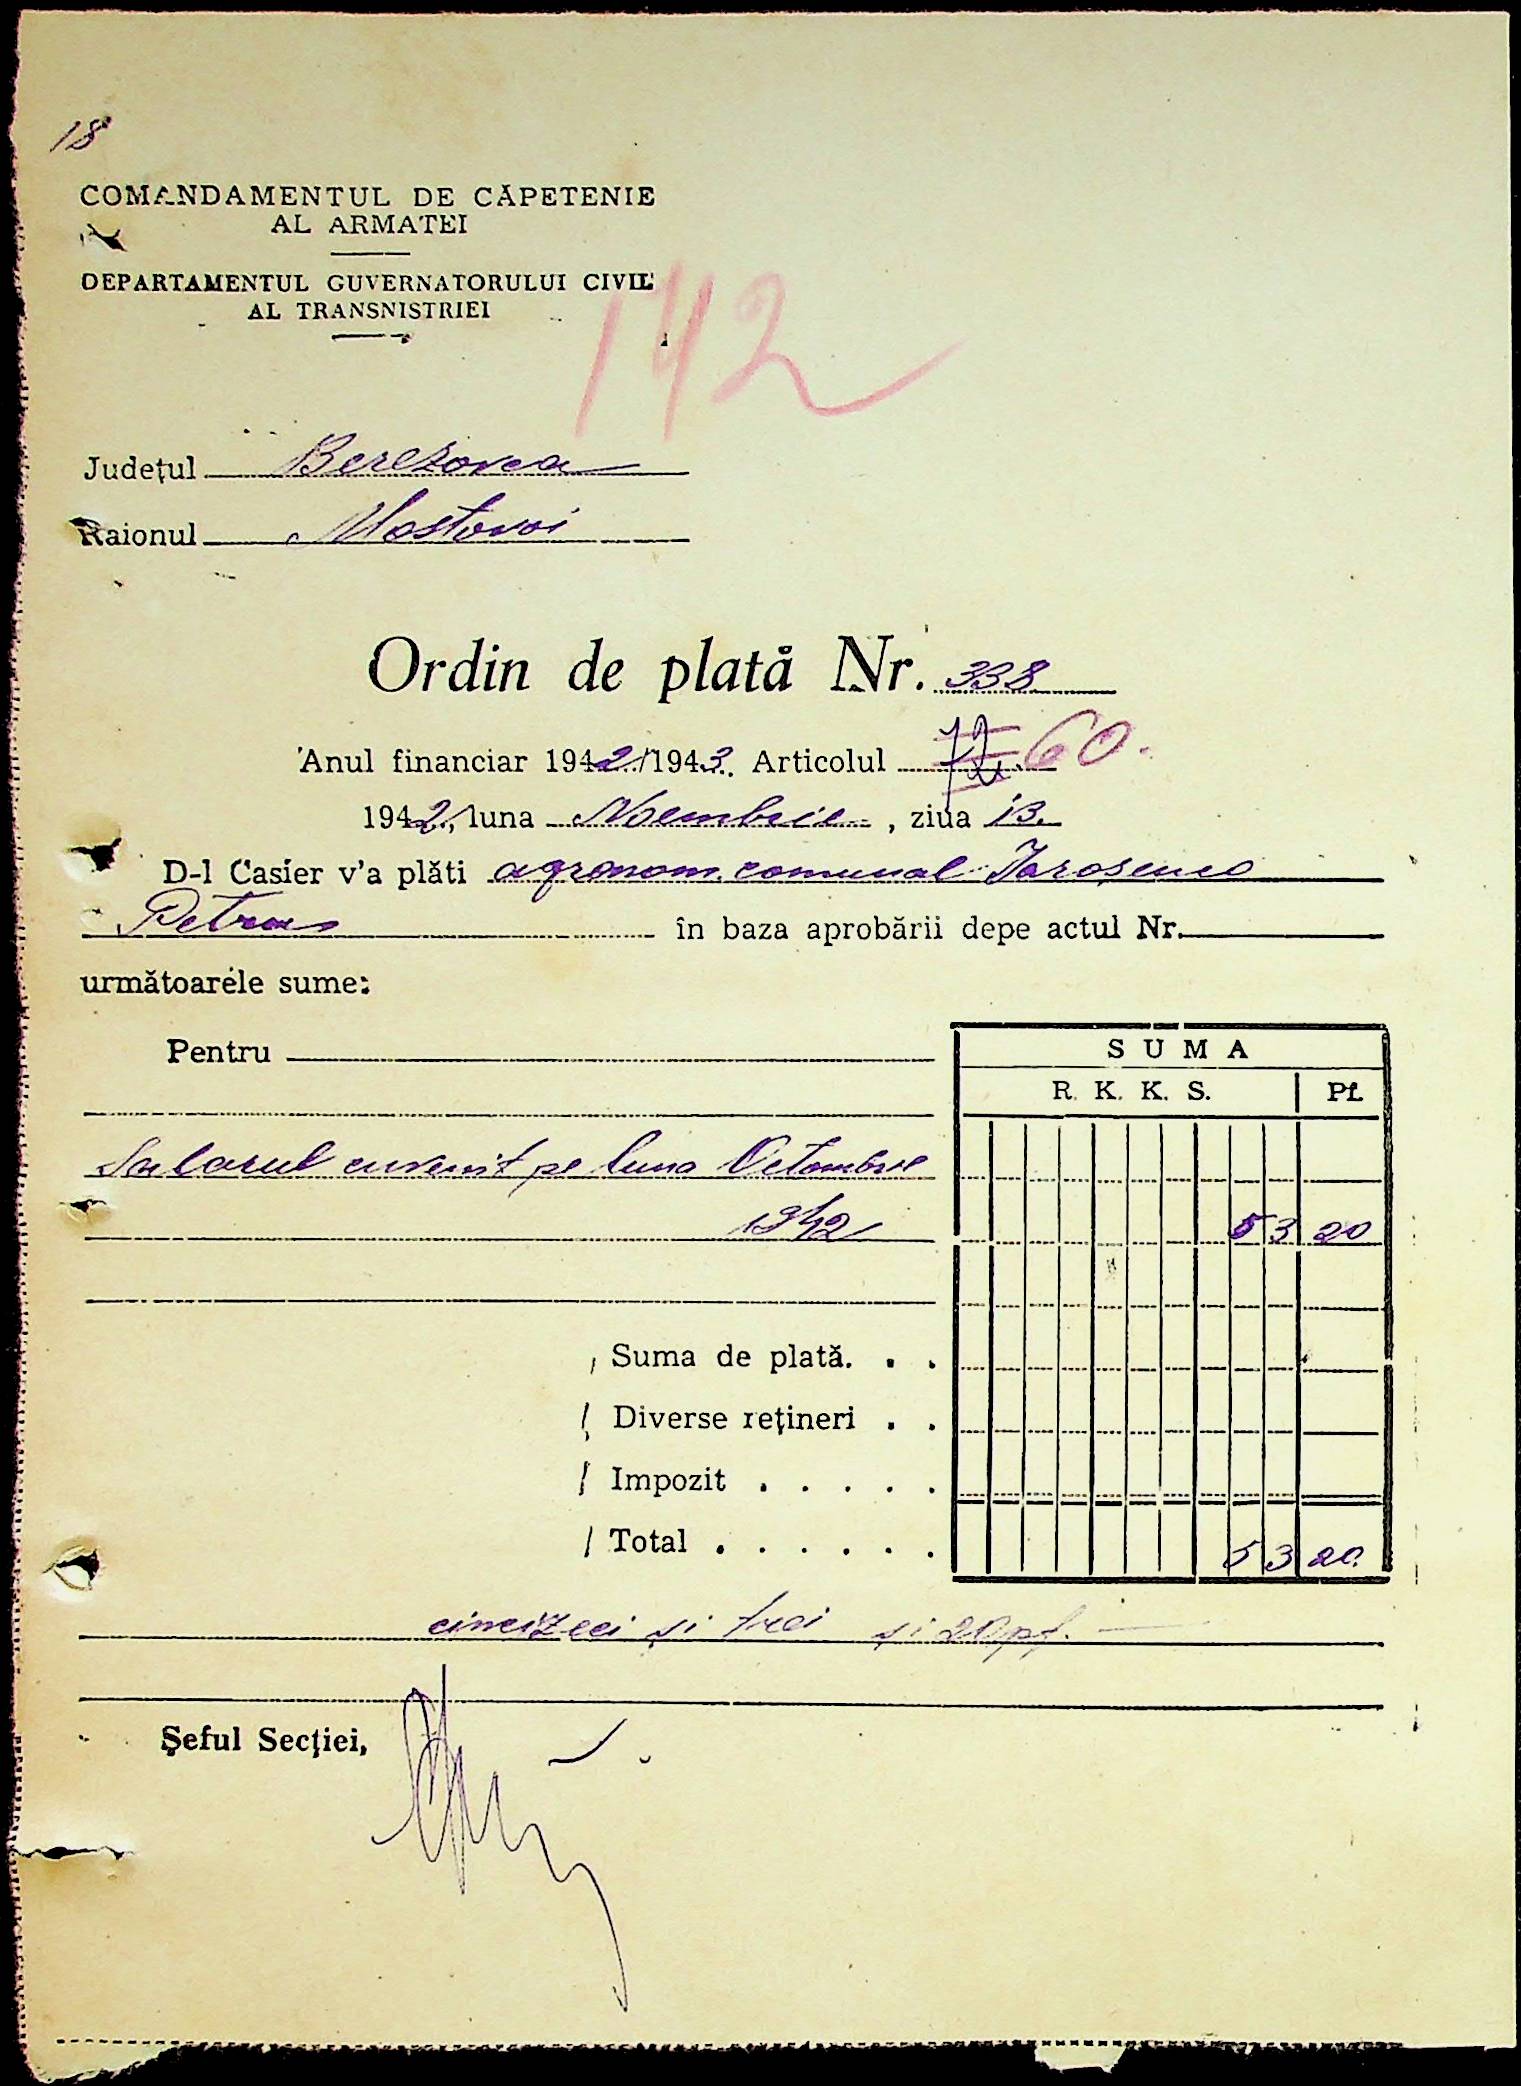 18
COMANDAMENTUL DE CĂPETENIE
AL ARMATEI
DEPARTAMENTUL GUVERNATORULUI CIVIL
AL TRANSNISTRIEI
142
Județul Berezovca
Raionul Mostovoi
Ordin de plată Nr. 338
Anul financiar 1942/1943. Articolul 60.
1942, luna Noembrie, ziua 13.
D-l Casier v'a plăti agronom. comunal Iaroșenco
Petru în baza aprobării depe actul Nr.
următoarele sume:
Pentru
SUMA
R. K. K. S. Pf.
Salarul cuvenit pe luna Octombrie
1942 53 20
Suma de plată. . .
Diverse rețineri . .
Impozit . . . . .
Total . . . . . . 53 20.
cincizeci și trei și 20 pf. —
Șeful Secției,